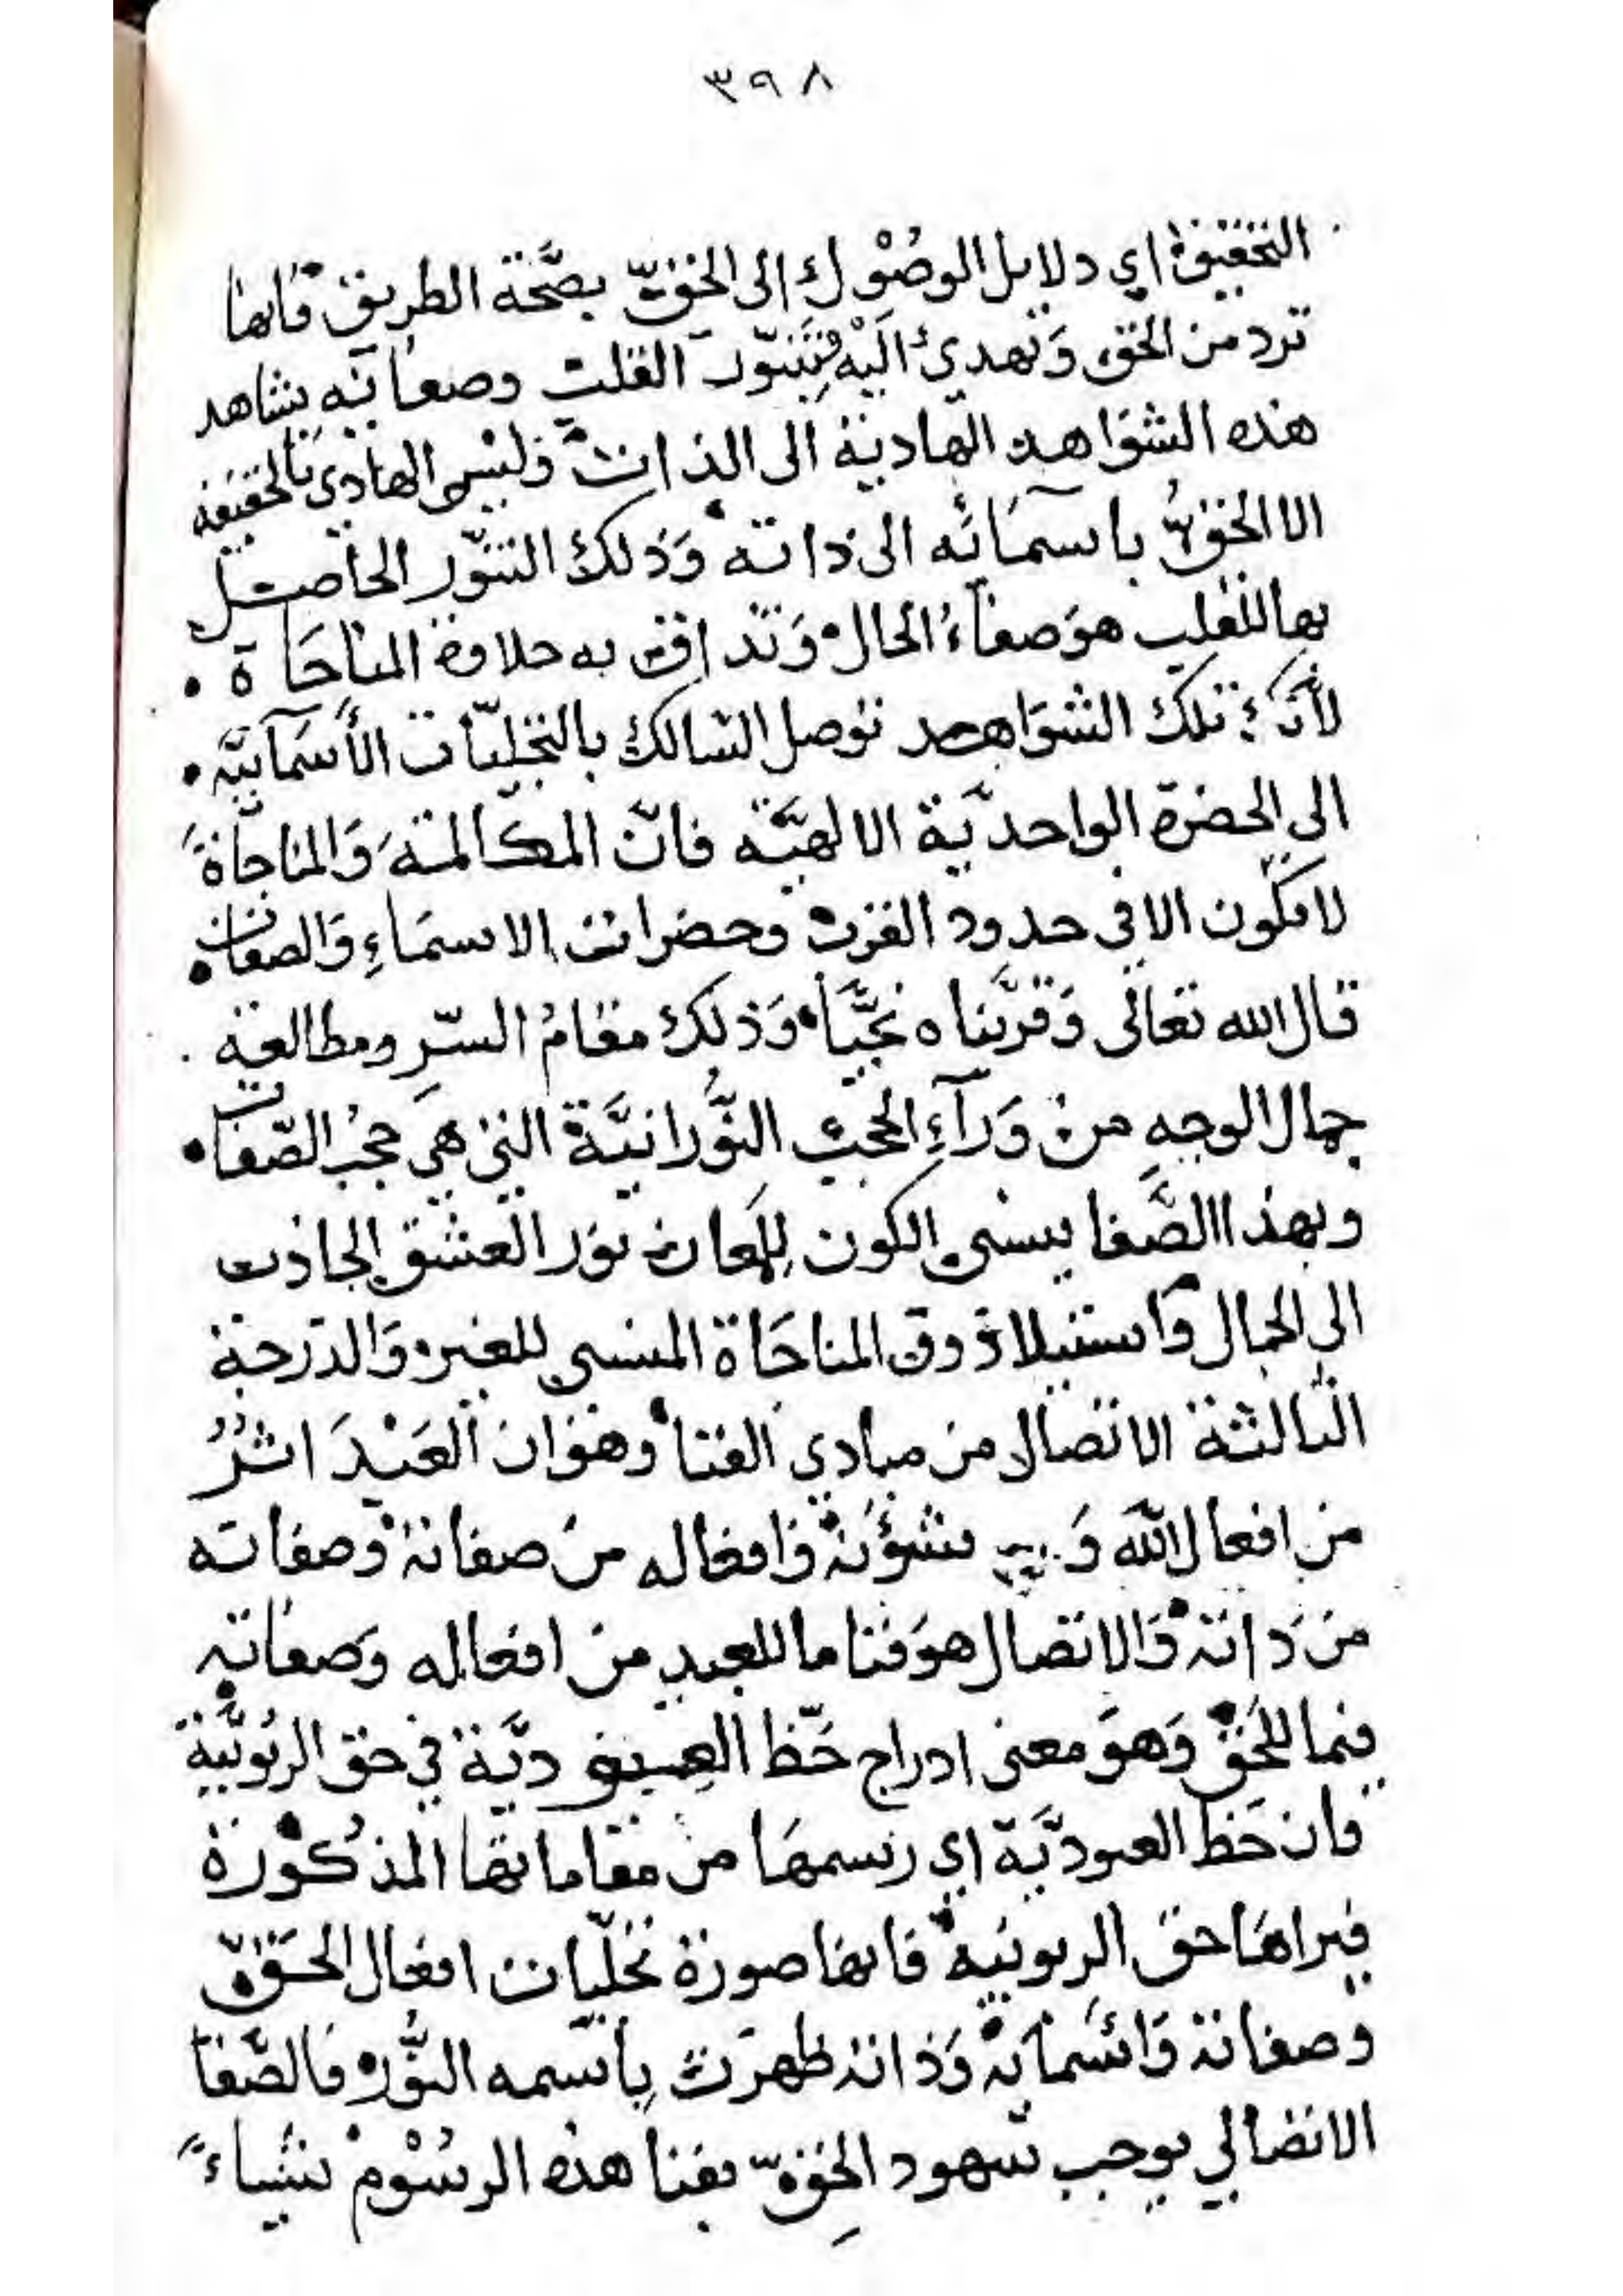 ٣٩٨
التحقيق اي دلايل الوصُوْل إلى الحقّ بصحَّة الطريق فانها
ترد من الحق وَتهدي الَيْه فتنوّر القلب وصفائه يشاهد
هذه الشوَاهد الهادية الى الذات وَليس الهادى بالحقيقة
الا الحقُّ باسمَائه الى ذاته وَذلك التنوّر الحاصل
بها للقلب هوَ صفآءُ الحال وَتذاق به حلاوة المناجَاة
لأنّ تلك الشوَاهد توصل السالك بالتجليّات الأسمآييَّه
الى الحضرة الواحديّة الالهيَّه فانّ المكالمة وَالمناجاةَ
لا تكون الا في حدود القرب وحضرات الاسمَاءِ وَالصفات
قال الله تعالى وَقرَّبناه نجيَّا وَذلك مقامُ السّرِ ومطالعة
جمال الوجهِ من وَرآءِ الحجب النُّورانيَّة التي هي حجبُ الصّفات
وبهذا الصَّفا ينسى الكون لِلمعان نور العشق الجاذب
الى الجمال وَاستيلا ذوق المناجَاة المنسي للغير وَالدّرجة
الثالثة الاتصال من مبادي الفنا وهوَ ان العَبْدَ اثرُ
من افعال الله وَ شؤنه وَافعاله من صفاته وَصفاته
من ذاته وَالاتصال هوَ فنا ما للعبد من افعاله وَصفاتِه
فيما للحَقّ وَهوَ معنى ادراج حَظّ العبوديَّة في حق الربُوبيَّة
فان حَظ العبوديَّة اي رسمهَا من مقاماتها المذكُوْرة
فيراهَا حق الربوبيَه فانها صورة تجلّيات افعال الحَقّ
وصفاته وَاسْمَآيه وَذاته ظهرَت باسمه النُّور فالصَّفا
الاتصالي يوجب شهود الحقِّ بفنا هذه الرسُوْم شيْياءً